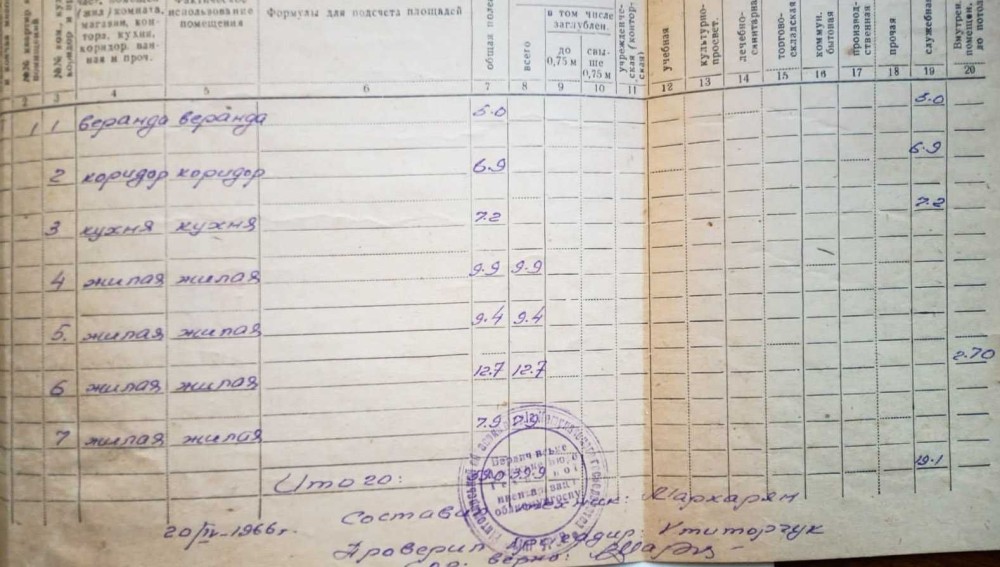 Формулы для подсчета площадей
/жил/комната,
магазин, кон-
тора, кухня,
коридор, ван-
ная и проч.
Фактическое
использование
помещения
общая полез
всего
в том числе
заглублен.
до
0,75 м
свы-
ше
0,75 м
учрежденче-
ская (контор-
ская)
учебная
культурно-
просвет.
лечебно-
санитарная
торгово-
складская
коммун.
бытовая
производ-
ственная
прочая
служебная
Внутрен.
помещен.
2 3 4 5 6 7 8 9 10 11 12 13 14 15 16 17 18 19 20
1 1 веранда веранда 5.0 5.0
2 коридор коридор 6.9 6.9
3 кухня кухня 7.2 7.2
4 жилая жилая 9.9 9.9
5. жилая жилая 9.4 9.4
6 жилая жилая 12.7 12.7 2.70
7 жилая жилая 7.9 7.9
Итого: 39.9 19.1
20/IV-1966г.
Составил техник: Мархарян
Проверил бригадир: Ктиторчук
верно: